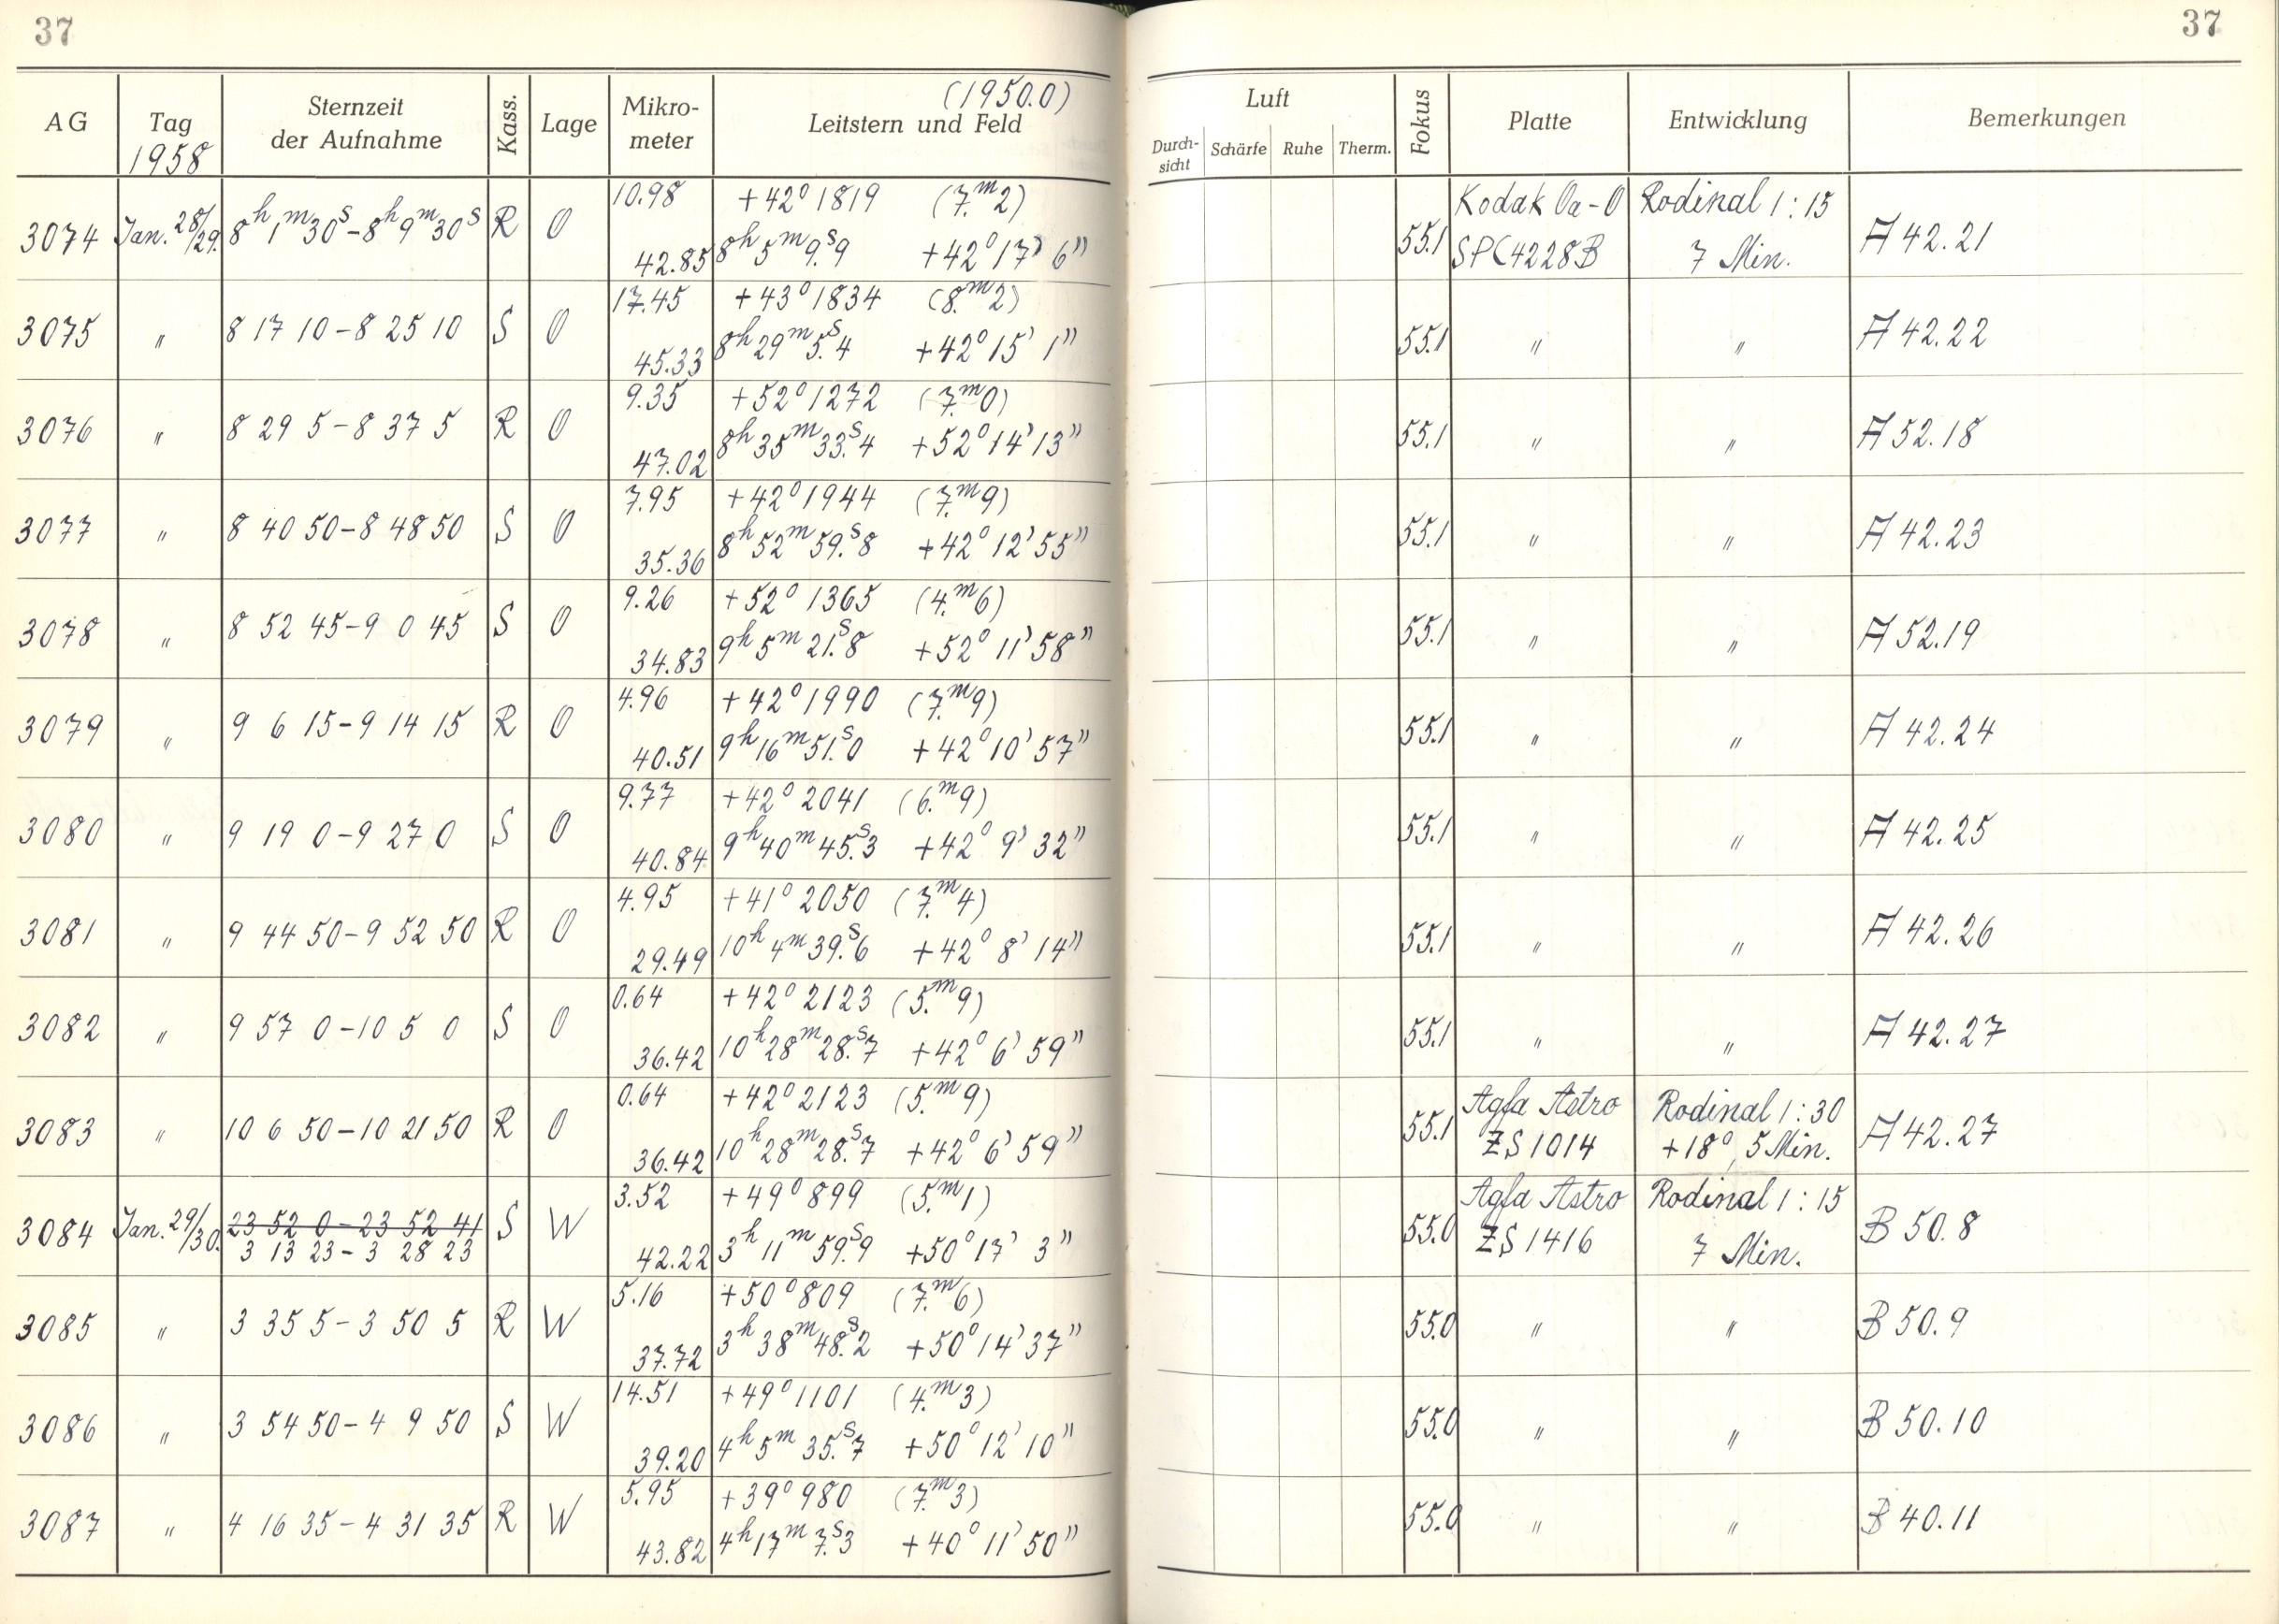 37
37
(1950.0)
AG Tag Sternzeit der Aufnahme Kass. Lage Mikro-meter Leitstern und Feld Luft Durch-sicht Schärfe Ruhe Therm. Fokus Platte Entwicklung Bemerkungen
1958
10.98 +42° 1819 (7.ᵐ2) Kodak Oa-O Rodinal 1:15
3074 Jan. 28/29. 8ʰ1ᵐ30ˢ-8ʰ9ᵐ30ˢ R O 55.1 A 42.21
42.85 8ʰ5ᵐ9.ˢ9 +42°17' 6" 7 Min.
17.45 +43° 1834 (8.ᵐ2)
3075 " 8 17 10-8 25 10 S O 55.1 " " A 42.22
45.33 8ʰ29ᵐ5.ˢ4 +42°15' 1"
9.35 +52° 1272 (7.ᵐ0)
3076 " 8 29 5-8 37 5 R O 55.1 " " A 52.18
47.02 8ʰ35ᵐ33.ˢ4 +52°14'13"
7.95 +42° 1944 (7.ᵐ9)
3077 " 8 40 50-8 48 50 S O 55.1 " " A 42.23
35.36 8ʰ52ᵐ59.ˢ8 +42°12'55"
9.26 +52° 1365 (4.ᵐ6)
3078 " 8 52 45-9 0 45 S O 55.1 " " A 52.19
34.83 9ʰ5ᵐ21.ˢ8 +52°11'58"
4.96 +42° 1990 (7.ᵐ9)
3079 " 9 6 15-9 14 15 R O 55.1 " " A 42.24
40.51 9ʰ16ᵐ51.ˢ0 +42°10'57"
9.77 +42° 2041 (6.ᵐ9)
3080 " 9 19 0-9 27 0 S O 55.1 " " A 42.25
40.84 9ʰ40ᵐ45.ˢ3 +42° 9'32"
4.95 +41° 2050 (7.ᵐ4)
3081 " 9 44 50-9 52 50 R O 55.1 " " A 42.26
29.49 10ʰ4ᵐ39.ˢ6 +42° 8'14"
0.64 +42° 2123 (5.ᵐ9)
3082 " 9 57 0-10 5 0 S O 55.1 " " A 42.27
36.42 10ʰ28ᵐ28.ˢ7 +42° 6'59"
0.64 +42° 2123 (5.ᵐ9) Agfa Astro Rodinal 1:30
3083 " 10 6 50-10 21 50 R O 55.1 A 42.27
36.42 10ʰ28ᵐ28.ˢ7 +42° 6'59" ZS 1014 +18°, 5 Min.
3.52 +49° 899 (5.ᵐ1) Agfa Astro Rodinal 1:15
3084 Jan. 29/30. 23 52 0-23 52 41 S W 55.0 ZS 1416 B 50.8
3 13 23-3 28 23 42.22 3ʰ11ᵐ59.ˢ9 +50°17' 3" 7 Min.
5.16 +50° 809 (7.ᵐ6)
3085 " 3 35 5-3 50 5 R W 55.0 " " B 50.9
37.72 3ʰ38ᵐ48.ˢ2 +50°14'37"
14.51 +49° 1101 (4.ᵐ3)
3086 " 3 54 50-4 9 50 S W 55.0 " " B 50.10
39.20 4ʰ5ᵐ35.ˢ7 +50°12'10"
5.95 +39° 980 (7.ᵐ3)
3087 " 4 16 35-4 31 35 R W 55.0 " " B 40.11
43.82 4ʰ17ᵐ7.ˢ3 +40°11'50"